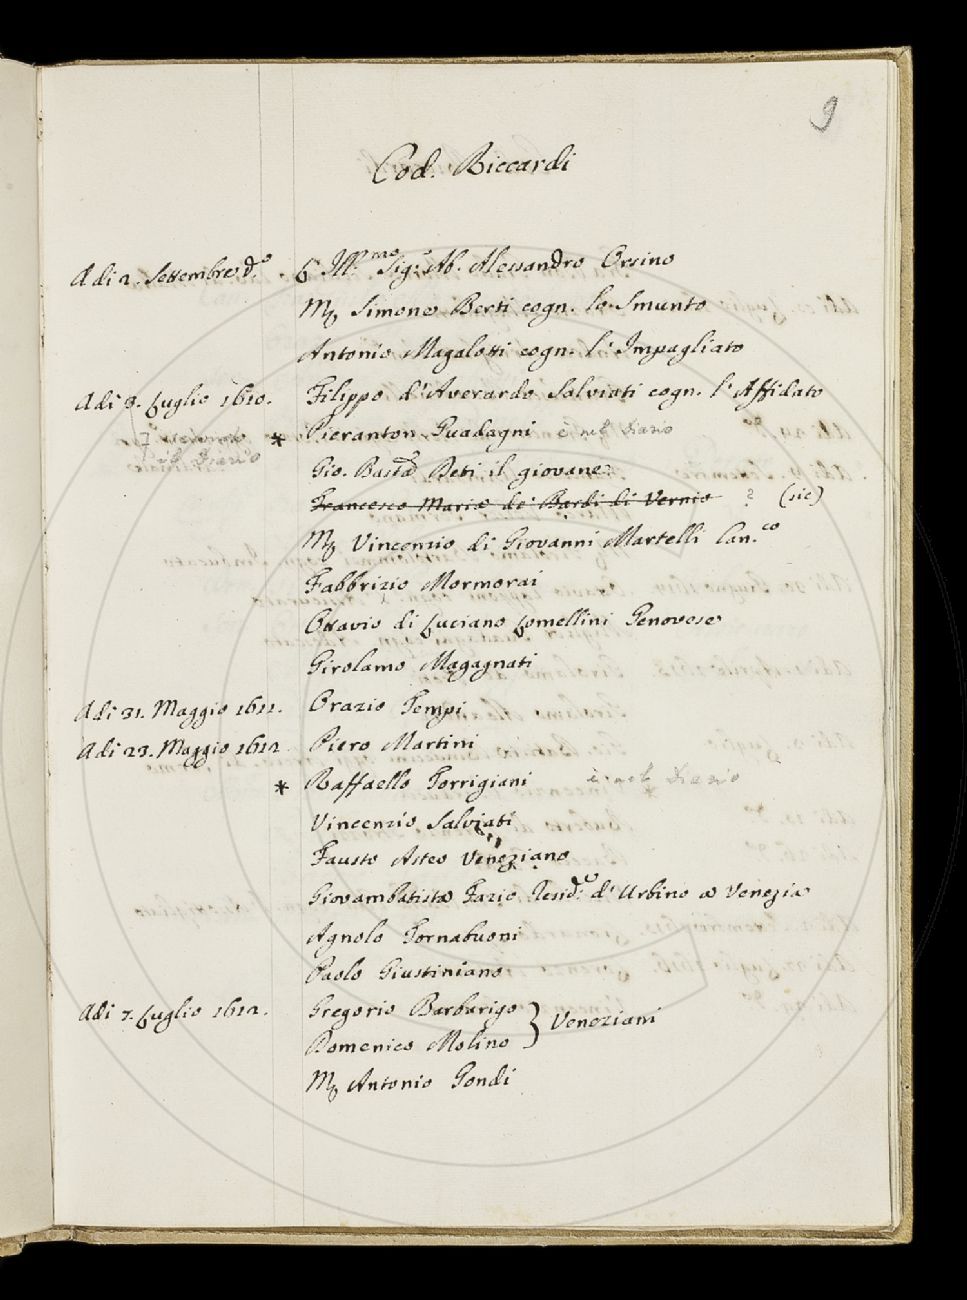 9
Cod. Riccardi
Adi 2. Settembre d.o L' Ill.mo Sig.r Ab. Alessandro Orsino
M Simone Berti cogn. lo Smunto
Antonio Magalotti cogn. l'Impagliato
Adi 8. Luglio 1610. Filippo d'Averardo Salviati cogn. l'Affidato
* Pieranton Guadagni è nel Diario
il Diario
Gio. Batta Deti il giovane
Francesco Maria de' Bardi di Vernio ? (sic)
M Vincenzio di Giovanni Martelli Can.co
Fabbrizio Mormorai
Ottavio di Luciano Lomellini Genovese
Girolamo Magagnati
Adi 31. Maggio 1611. Orazio Tempi
Adi 23. Maggio 1612 Piero Martini
* Raffaello Torrigiani è nel Diario
Vincenzio Salviati
Fausto Asteo Veneziano
Giovambatista Fazio Resid.e d'Urbino a Venezia
Agnolo Tornabuoni
Paolo Giustiniano
Adi 7. Luglio 1612. Gregorio Barbarigo
Domenico Molino } Veneziani
M Antonio Gondi